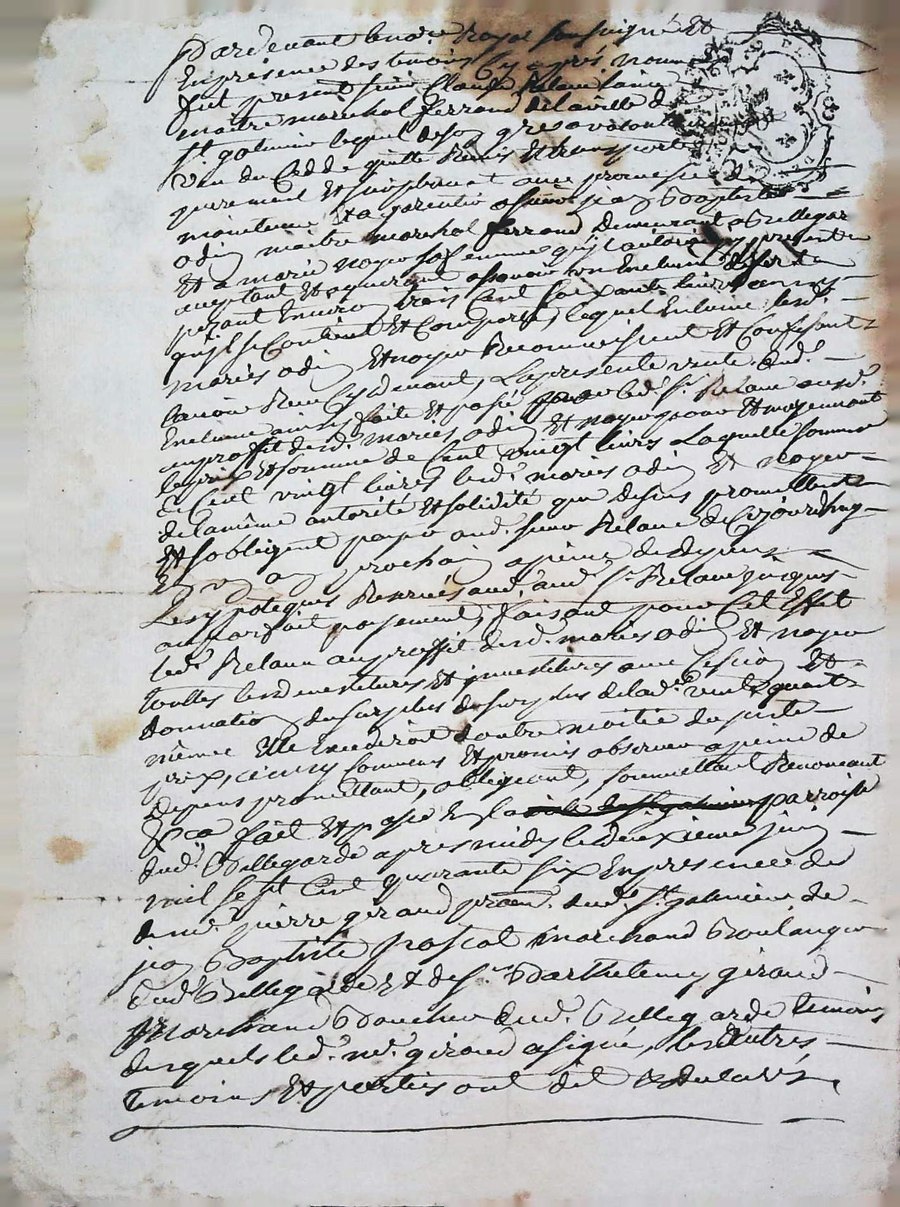 Pardevant le notaire Royal soussigné Et
En presence des temoins Cy après nommés
fut present sieur Claude Relave l'aîné
maitre marêchal ferrand de la ville de
St galmier lequel de son gré a volontairement
vendu Cedde quitte Remis Et transporte
purement Et simplement avec promesse de
maintenue Et a garentie a sieur jean Baptiste
odin maitre marêchal ferrand demeurant a Bellegarde
Et a marie noyer sa femme qu'il autorise present
acceptant Et aquerant assavoir un Enclume de fer
pezant Environ trois Cent soixante livres
qu'il se Contient Et Comporte, laquel Enclume lesd.
mariés odin Et noyer Reconnoissent Et Confessent
l'avoir Reue Cy devant, La presente vente dud.
Enclume ainsy faite Et passé par led. Sr Relave
au proffit desd. mariés odin Et noyer pour Et moyennant
le prix Et somme de Cent vingt livres Laquelle somme
de Cent vingt livres lesd. mariés odin Et noyer
de la même autorité Et solidité que dessus promettent
Et s'obligent payer aud. sieur Relave de Cejourdhuy
En un an prochain a peine de depens
Les ypoteques Reservés aud. Sr Relave jusques
au parfait payement, faisant pour Cet Effet
led. Relave au proffit desd. mariés odin Et noyer
touttes les devestitures Et investitures avec Cession Et
donnation du surplus de lad. vente quant
même Elle Excederoit d'outre moitié du juste
prix, ainsy Convenu Et promis observer a peine de
depens promettant, obligeant, soumettant Renonceant
Et Ca fait Et passé En la parroisse
dud. Bellegarde apres midy le deuxieme juin
mil sept Cent quarante six En presence de
de me. pierre giraud dud. St galmier de
jean Baptiste pascal marchand Boulanger
dud. Bellegarde Et de Sr. Barthelemy giraud
Marchand Boucher dud. Bellegarde temoins
desquels led. me. giraud a signé, les autres
temoins Et parties ont dit